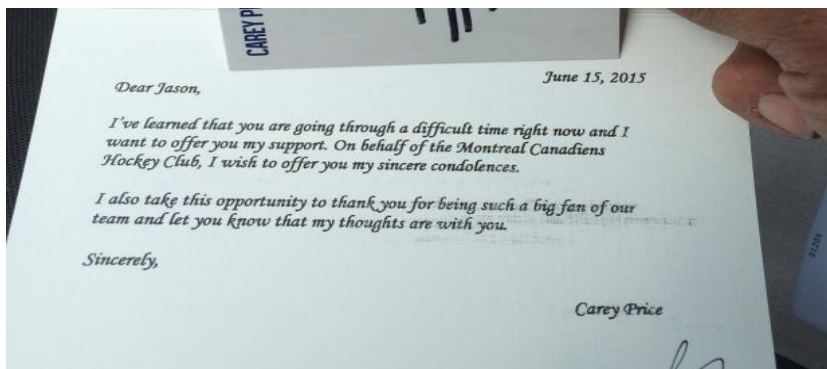 CAREY P
June 15, 2015
Dear Jason,
I've learned that you are going through a difficult time right now and I
want to offer you my support. On behalf of the Montreal Canadiens
Hockey Club, I wish to offer you my sincere condolences.
I also take this opportunity to thank you for being such a big fan of our
team and let you know that my thoughts are with you.
Sincerely,
Carey Price
01206